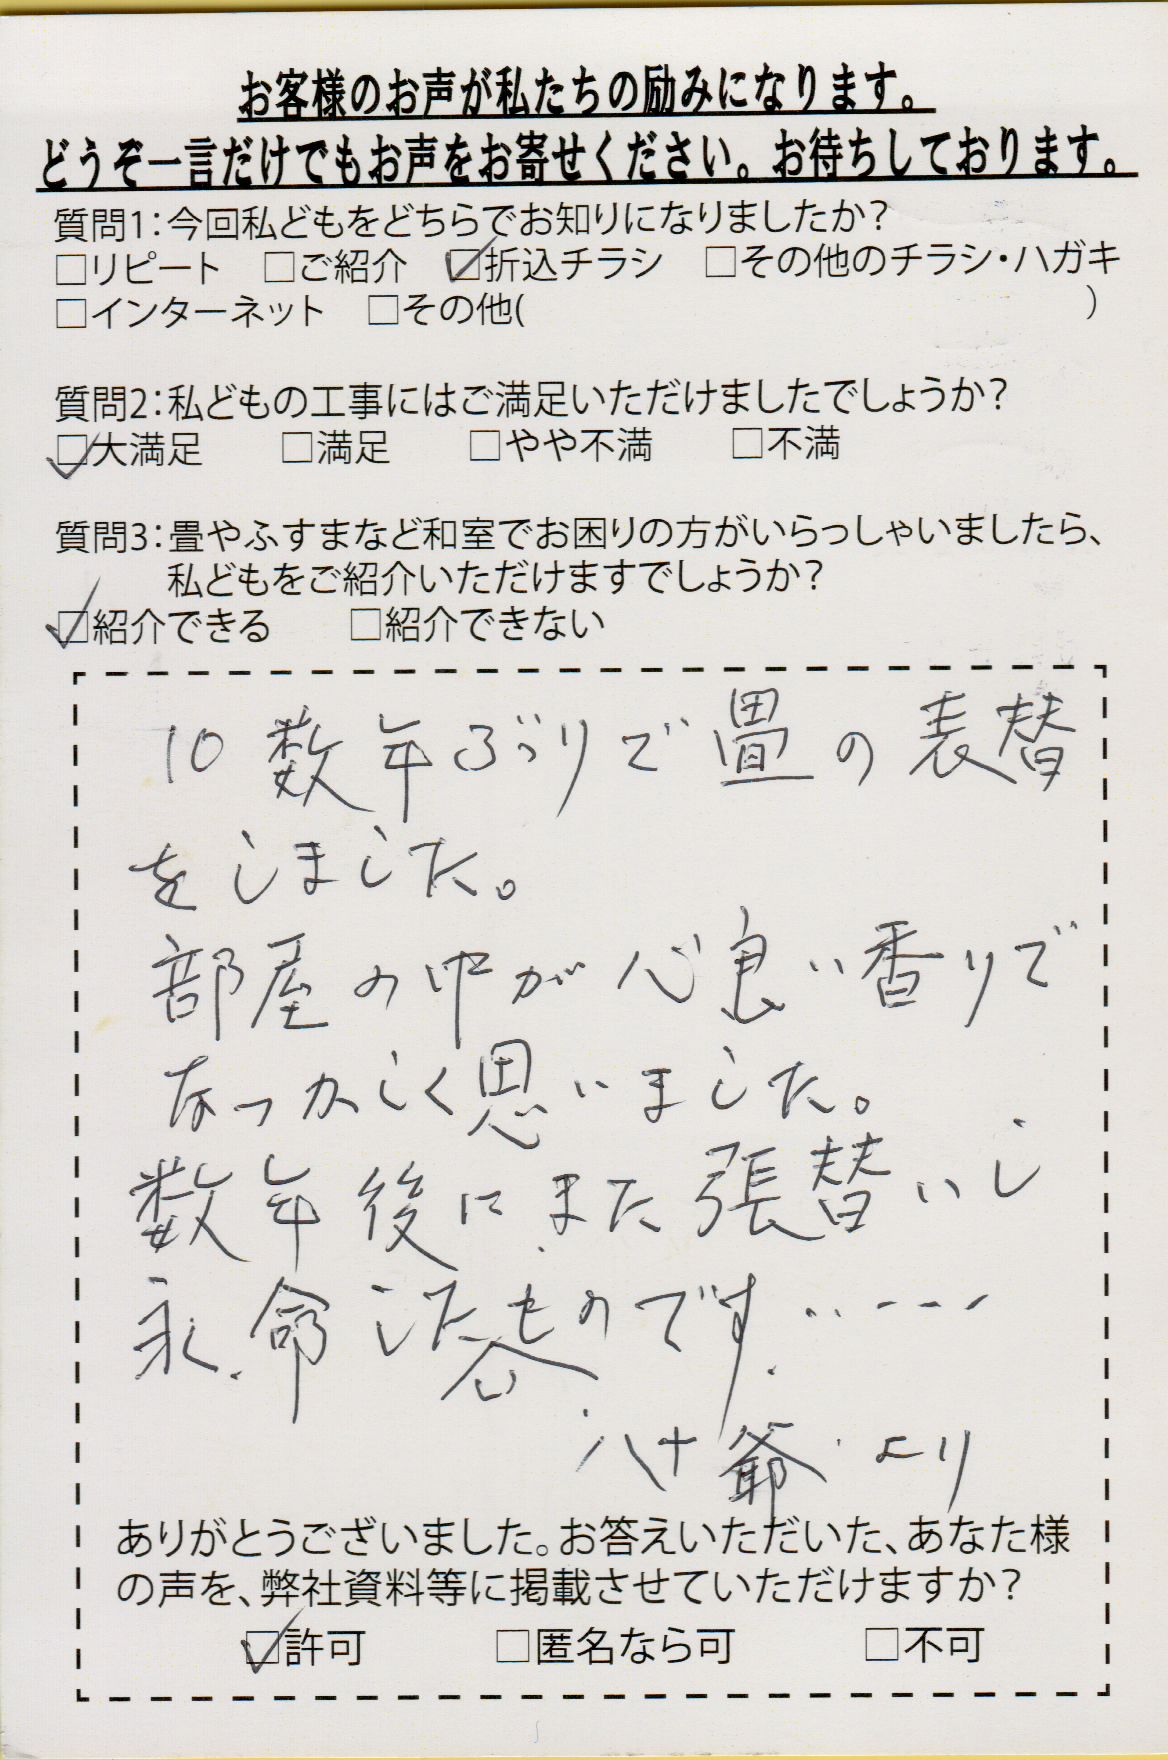 お客様のお声が私たちの励みになります。
どうぞ一言だけでもお声をお寄せください。お待ちしております。
質問1：今回私どもをどちらでお知りになりましたか？
□リピート　□ご紹介　☑折込チラシ　□その他のチラシ・ハガキ
□インターネット　□その他(　　　　　　　　　　　　　)
質問2：私どもの工事にはご満足いただけましたでしょうか？
☑大満足　□満足　□やや不満　□不満
質問3：畳やふすまなど和室でお困りの方がいらっしゃいましたら、
私どもをご紹介いただけますでしょうか？
☑紹介できる　□紹介できない
10数年ぶりで畳の表替
をしました。
部屋の中が心良い香りで
なつかしく思いました。
数年後にまた張替いし
永命したいものです……
八十爺より
ありがとうございました。お答えいただいた、あなた様
の声を、弊社資料等に掲載させていただけますか？
☑許可　□匿名なら可　□不可